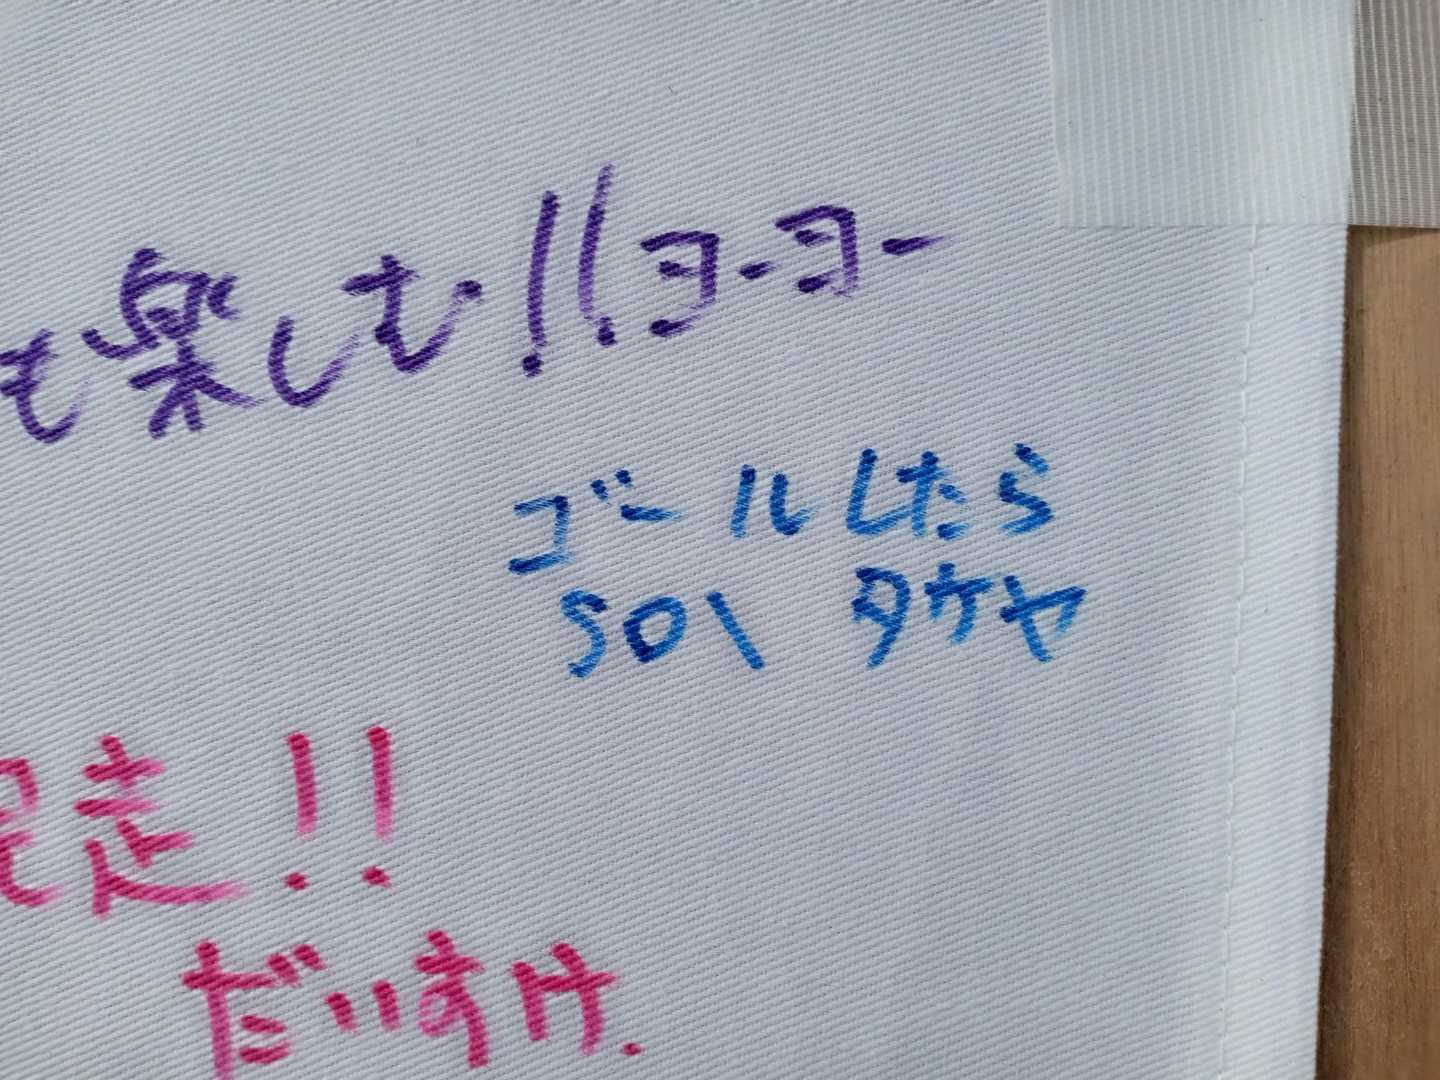 も楽しむ!! ヨーヨー
ゴールしたら
タケヤ
走!!
だいすけ.